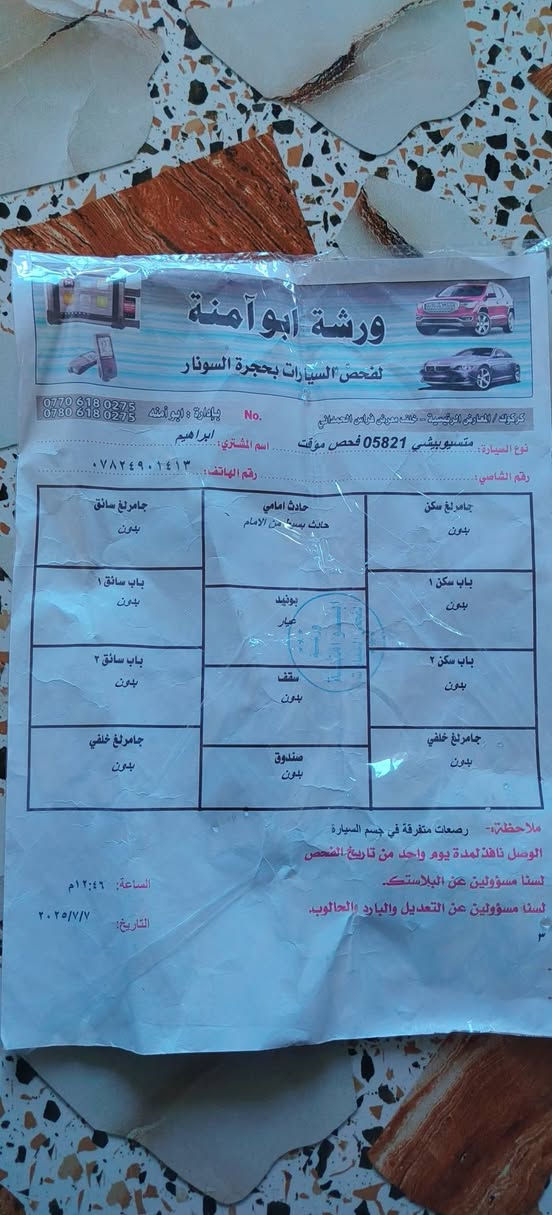 ورشة ابو آمنة
لفحص السيارات بحجرة السونار
كركوك / المعارض الرئيسية - خلف معرض فراس الحمداني
No.
بإدارة : ابو آمنه
0770 618 0275
0780 618 0275
نوع السيارة: متسيوبيشي 05821 فحص موقت
اسم المشتري: ابراهيم
رقم الشاصي:
رقم الهاتف: ٠٧٨٢٤٩٠١٤١٣
جامرلغ سكن
بدون
حادث امامي
حادث بسيط من الامام
جامرلغ سائق
بدون
باب سكن ١
بدون
بونيد
غيار
باب سائق ١
بدون
باب سكن ٢
بدون
سقف
بدون
باب سائق ٢
بدون
جامرلغ خلفي
بدون
صندوق
بدون
جامرلغ خلفي
بدون
ملاحظة:- رصعات متفرقة في جسم السيارة
الوصل نافذ لمدة يوم واحد من تاريخ الفحص
لسنا مسؤولين عن البلاستك.
الساعة: ١٢:٤٦م
لسنا مسؤولين عن التعديل والبارد والحالوب.
التاريخ: ٢٠٢٥/٧/٧
٣